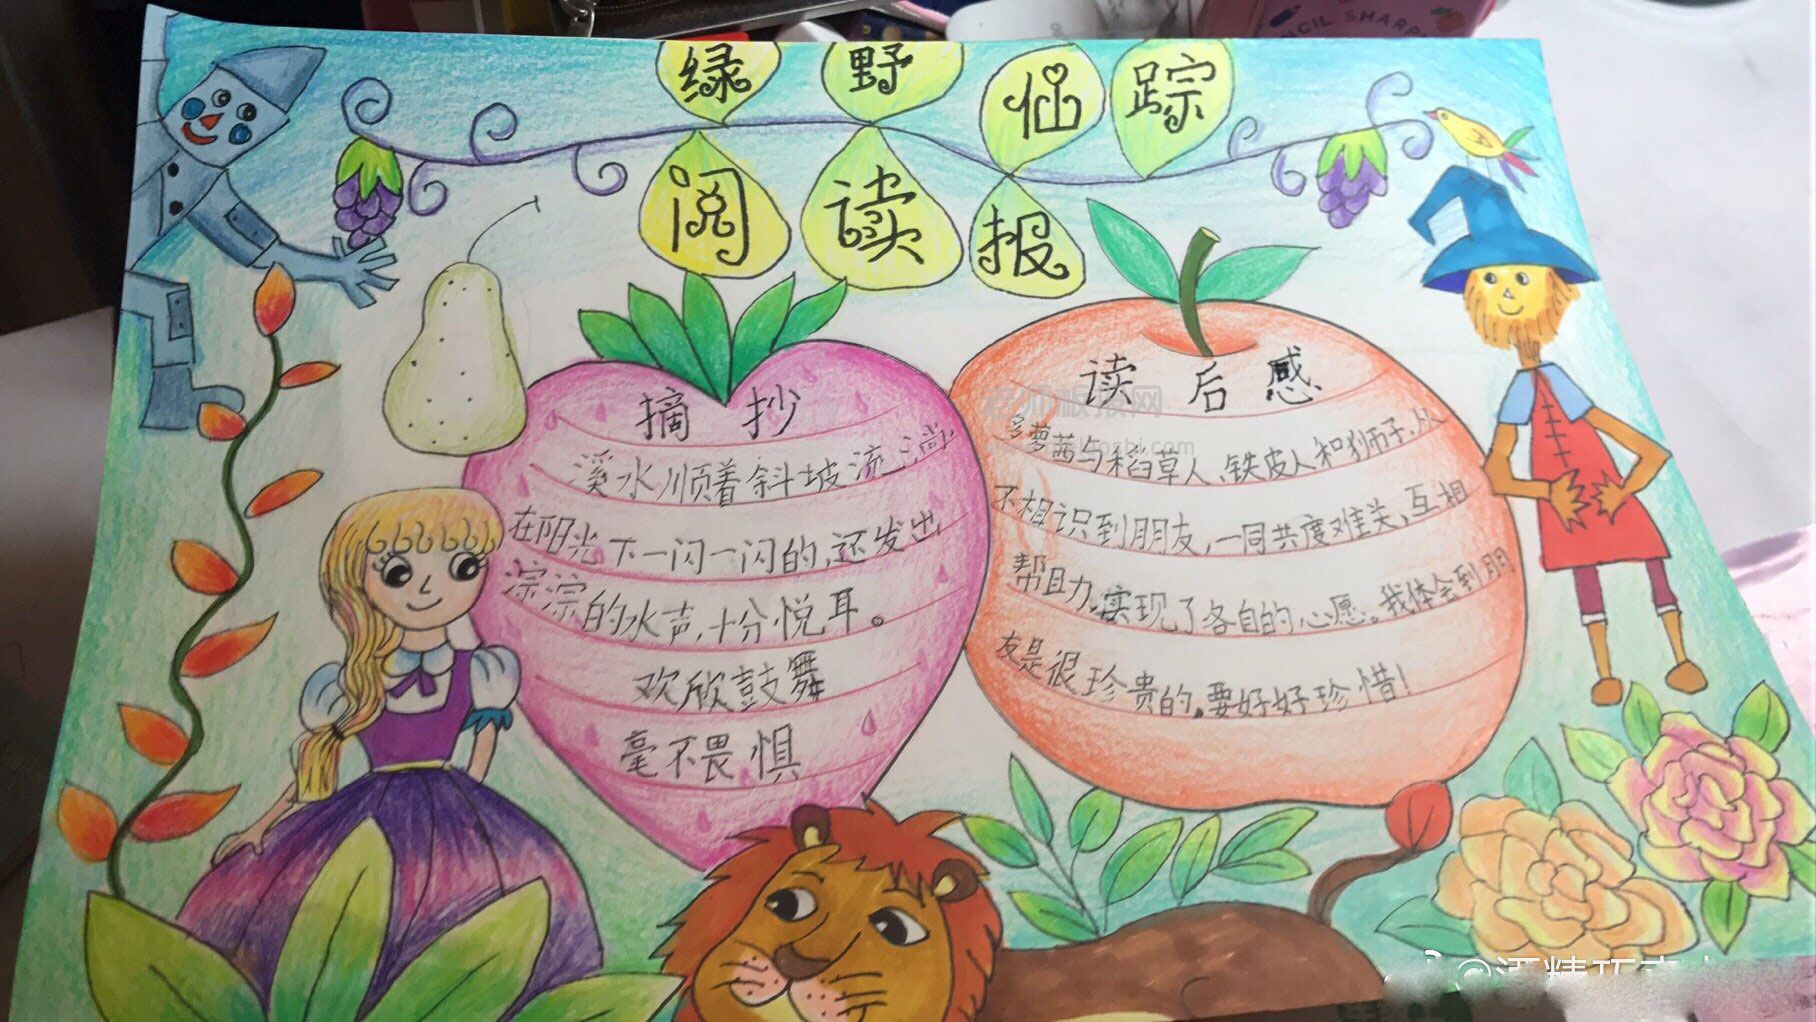 绿野仙踪
阅读报
摘抄
溪水顺着斜坡流淌,
在阳光下一闪一闪的,还发出
淙淙的水声,十分悦耳。
欢欣鼓舞
毫不畏惧
读后感
多萝茜与稻草人、铁皮人和狮子,从
不相识到朋友,一同共度难关,互相
帮助,实现了各自的心愿。我体会到朋
友是很珍贵的。要好好珍惜!
老师板报网
NCIL SHARP